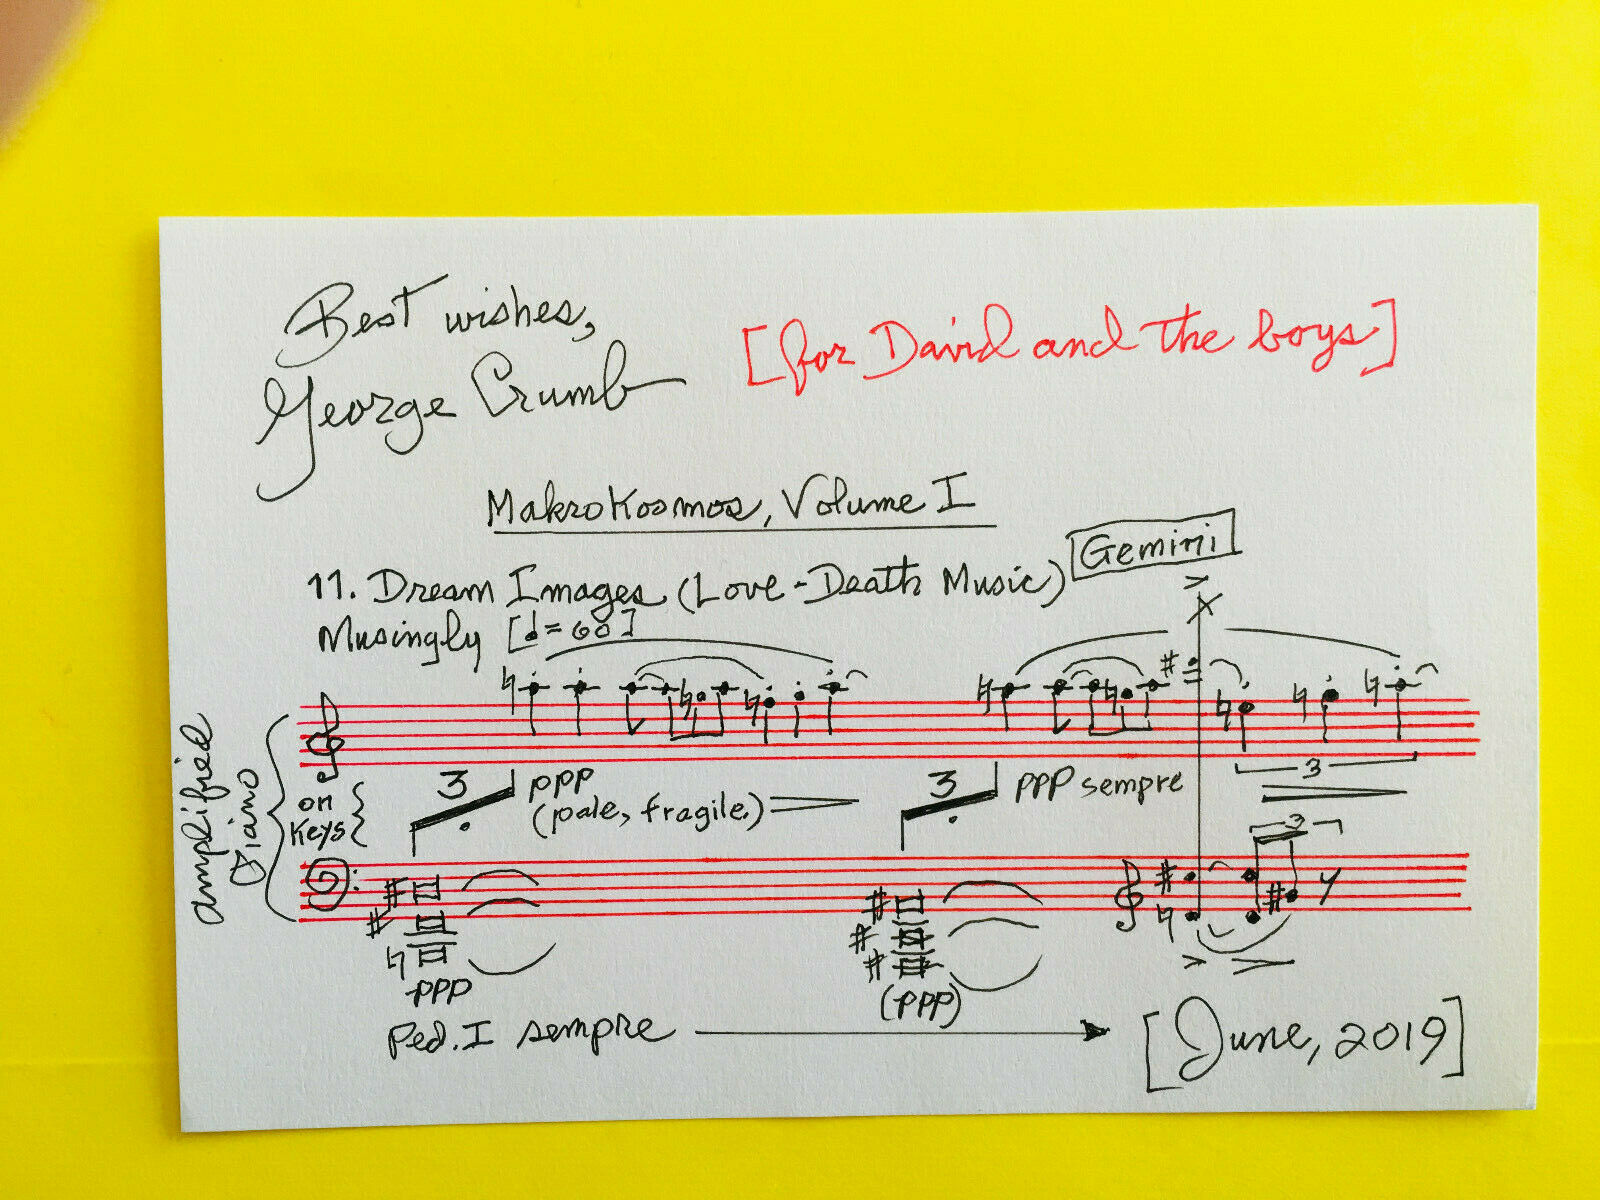 Best wishes,
George Crumb
[for David and the boys]
Makrokosmos, Volume I
11. Dream Images (Love-Death Music) Gemini
Musingly [♩=60]
amplified piano
on keys
3 ppp
(pale, fragile)
3 ppp sempre
3
3
ppp
(ppp)
Ped. I sempre
[June, 2019]